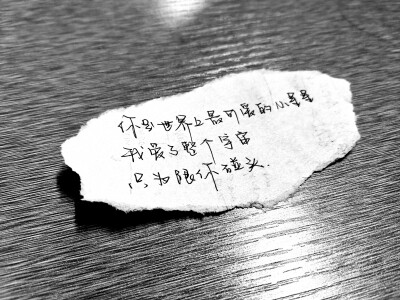 你是世界上最可爱的小星星
我晃了整个宇宙
只为跟你碰头.